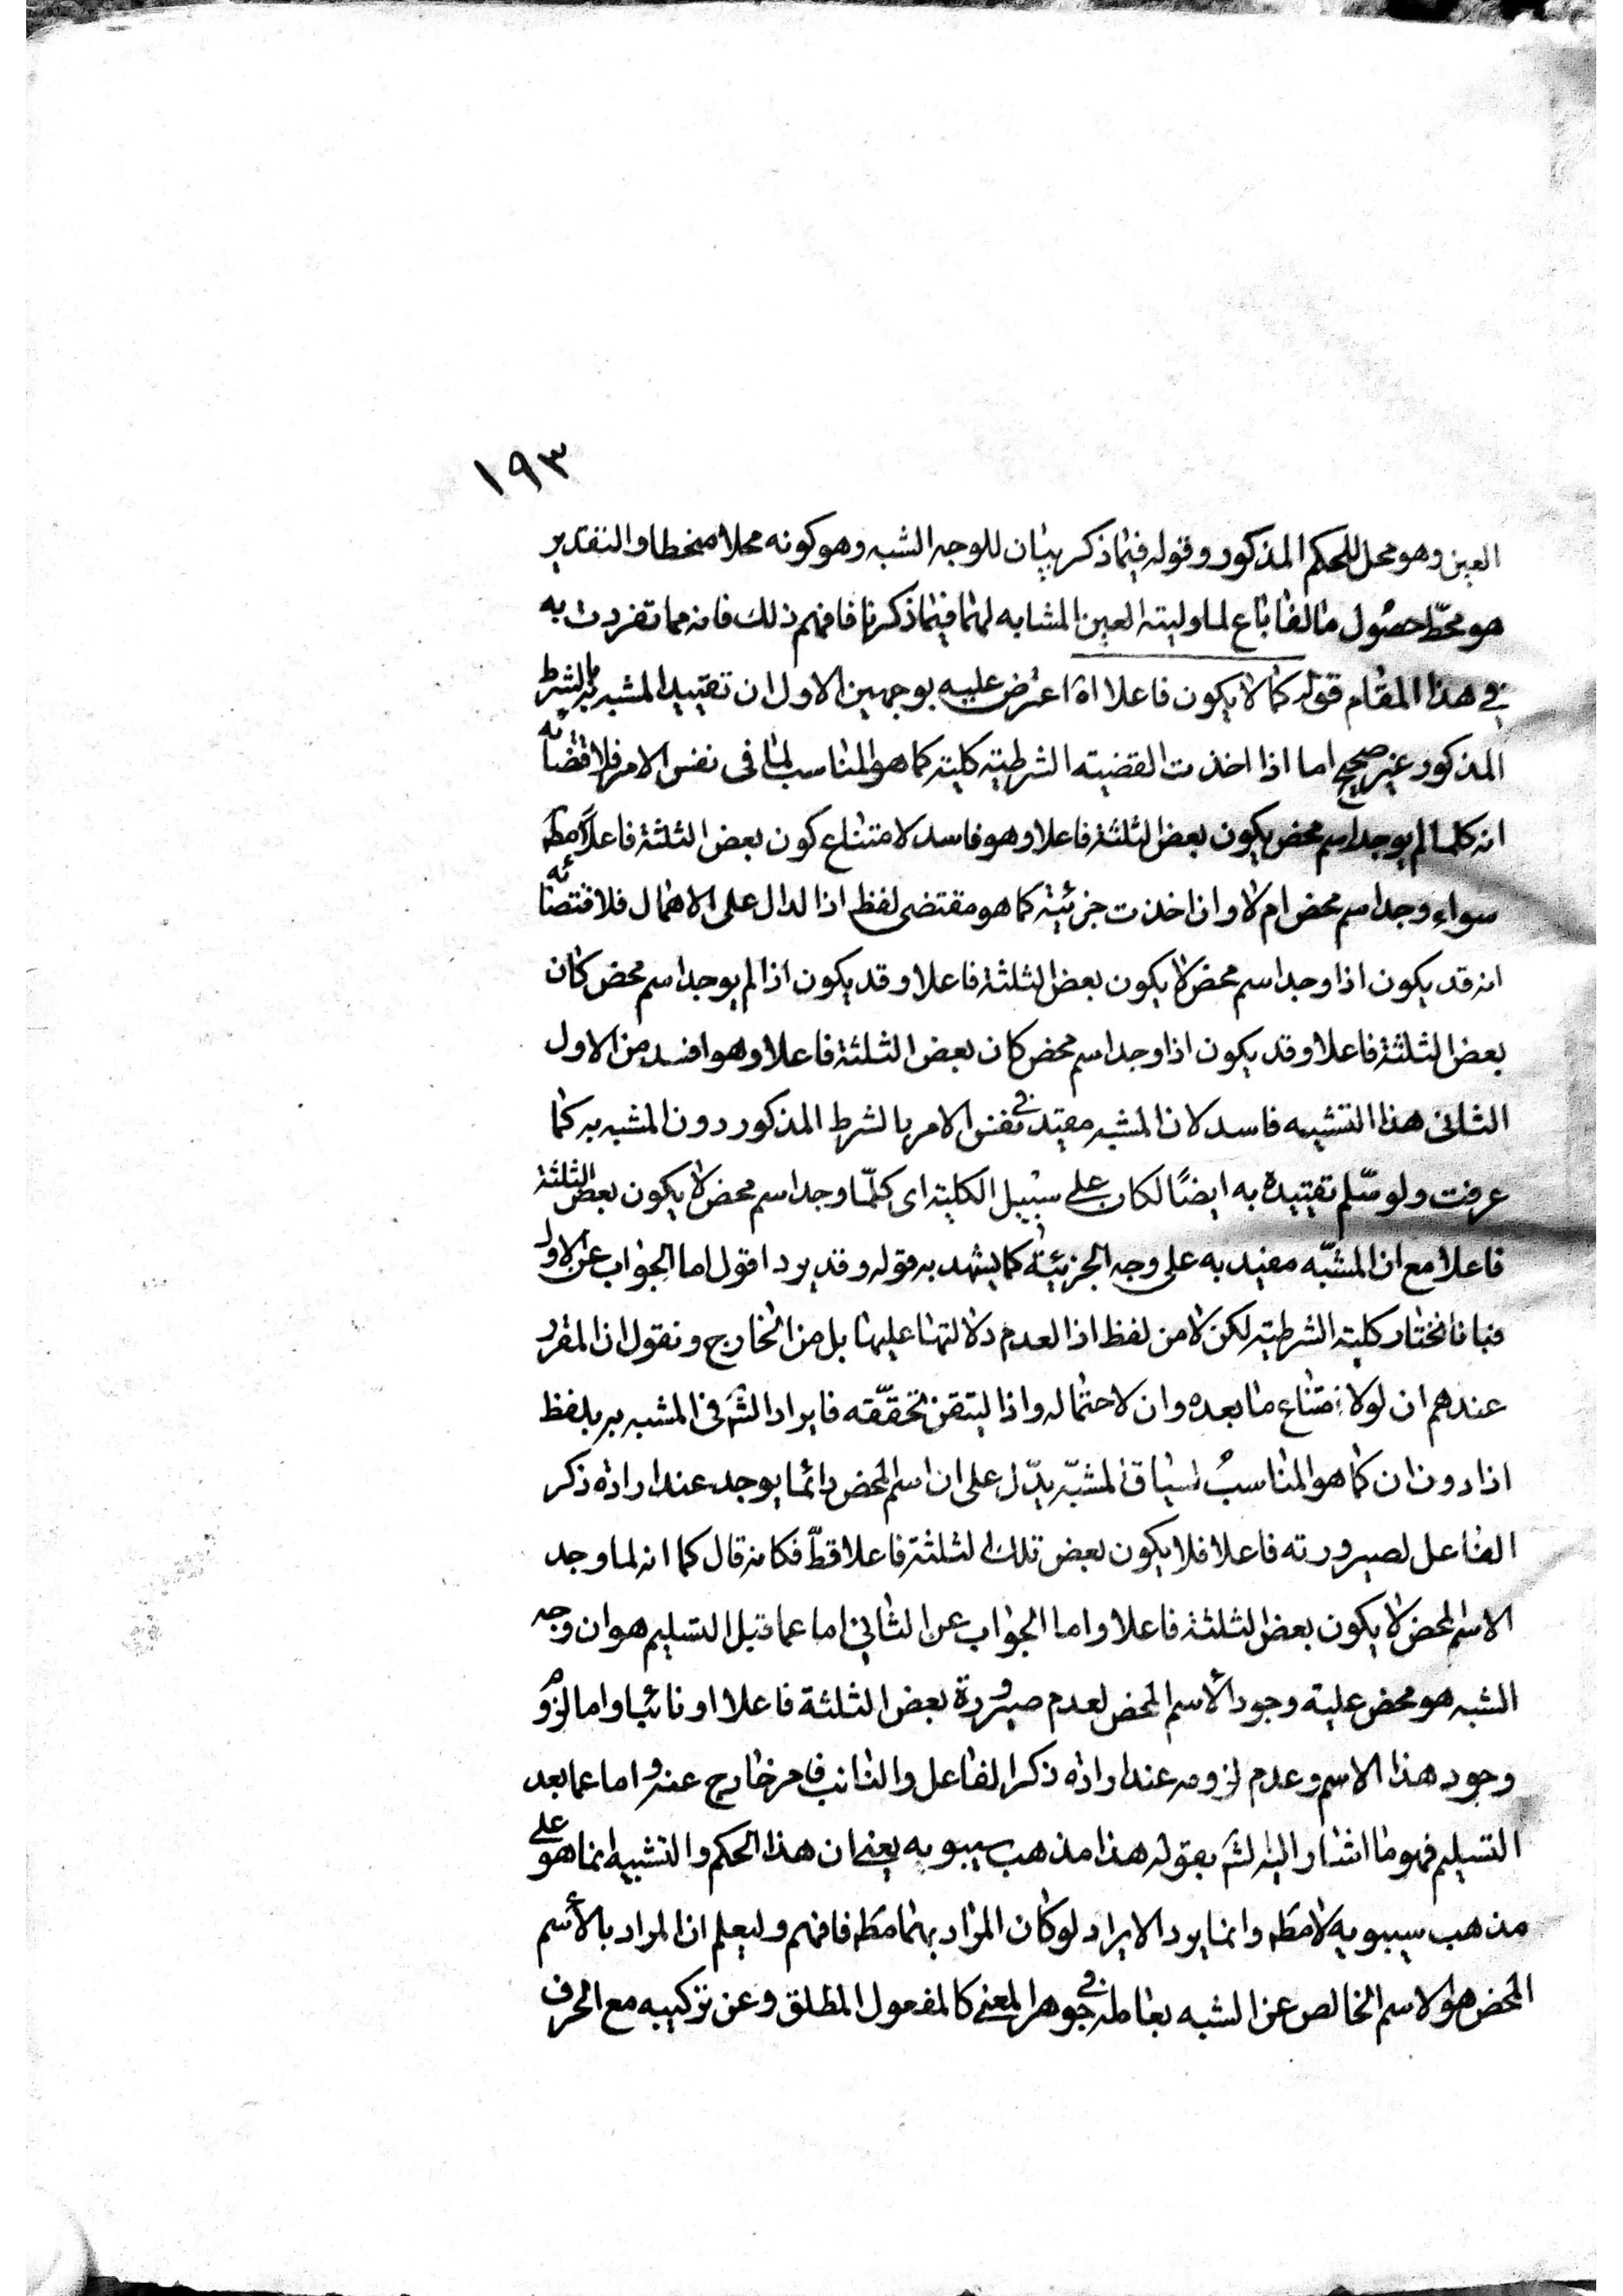 ١٩٣
العين وهو محل للحكم المذكور وقوله فيما ذكر بيان للوجه الشبه وهو كونه محلا منحطا والتقدير
هو محطّ حصول ما لفاباع لما وليته العين المشابه لهما فيما ذكرنا فافهم ذلك فانه مما تفردت به
في هذا المقام قوله كما لا يكون فاعلا اه اعترض عليه بوجهين الاول ان تقييد المشبه به بالشرط
المذكور غير صحيح اما اذا اخذت القضيته الشرطيته كليته كما هو المناسب لما فى نفس الامر فلاقتضائه
انه كلما لم يوجد اسم محض يكون بعض الثلثة فاعلا وهو فاسد لامتناع كون بعض الثلثة فاعلا مطه
سواء وجد اسم محض ام لا وان اخذت جزئيته كما هو مقتضى لفظ اذا لدال على الاهمال فلاقتصائه
انه قد يكون اذا وجد اسم محض لا يكون بعض الثلثة فاعلا وقد يكون اذا لم يوجد اسم محض كان
بعض الثلثة فاعلا وقد يكون اذا وجد اسم محض كان بعض الثلثة فاعلا وهو افسد من الاول
الثانى هذا التشبيه فاسد لان المشبه مقيد في نفس الامر بالشرط المذكور دون المشبه به كما
عرفت ولو سّلم تقييده به ايضًا لكان على سبيل الكليته اى كلّما وجد اسم محض لا يكون بعض الثلثة
فاعلا مع ان المشبّه مقيد به على وجه الجزئيّة كما يشهد به قوله وقد يرد اقول اما الجواب عن الاول
فبانا نختار كليته الشرطيته لكن لا من لفظ اذا لعدم دلالتها عليها بل من الخارج ونقول ان المقرر
عندهم ان لولا متناع ما بعده وان لاحتماله واذا ليتقن تحقّقه فايراد الشه فى المشبه به بلفظ
اذا دون ان كما هو المناسبُ لسياق المشبّه يدّل على ان اسم المحض دائما يوجد عند ارادة ذكر
الفاعل لصيرورته فاعلا فلا يكون بعض تلك الثلثة فاعلا قطّ فكانه قال كما انه لما وجد
الاسم المحض لا يكون بعض الثلثة فاعلا واما الجواب عن الثاني اما عما قبل التسليم هو ان وجه
الشبه هو محض عليته وجود الأسم المحض لعدم صيرورة بعض الثلثة فاعلا او نائبا واما لزوم
وجود هذا الاسم وعدم لزومه عند ارادة ذكر الفاعل والنائب فامر خارج عنه واما عما بعد
التسليم فهو ما اشار اليه لشه بقوله هذا مذهب سيبويه يعنى ان هذا الحكم والتشبيه انما هو على
مذهب سيبويه لا مطه وانما يرد الايراد لو كان المراد بهما مطه فافهم وليعلم ان المراد بالأسم
المحض هو الاسم الخالص عن الشبه بعامله في جوهر المعنى كالمفعول المطلق وعن تركيبه مع الحرف